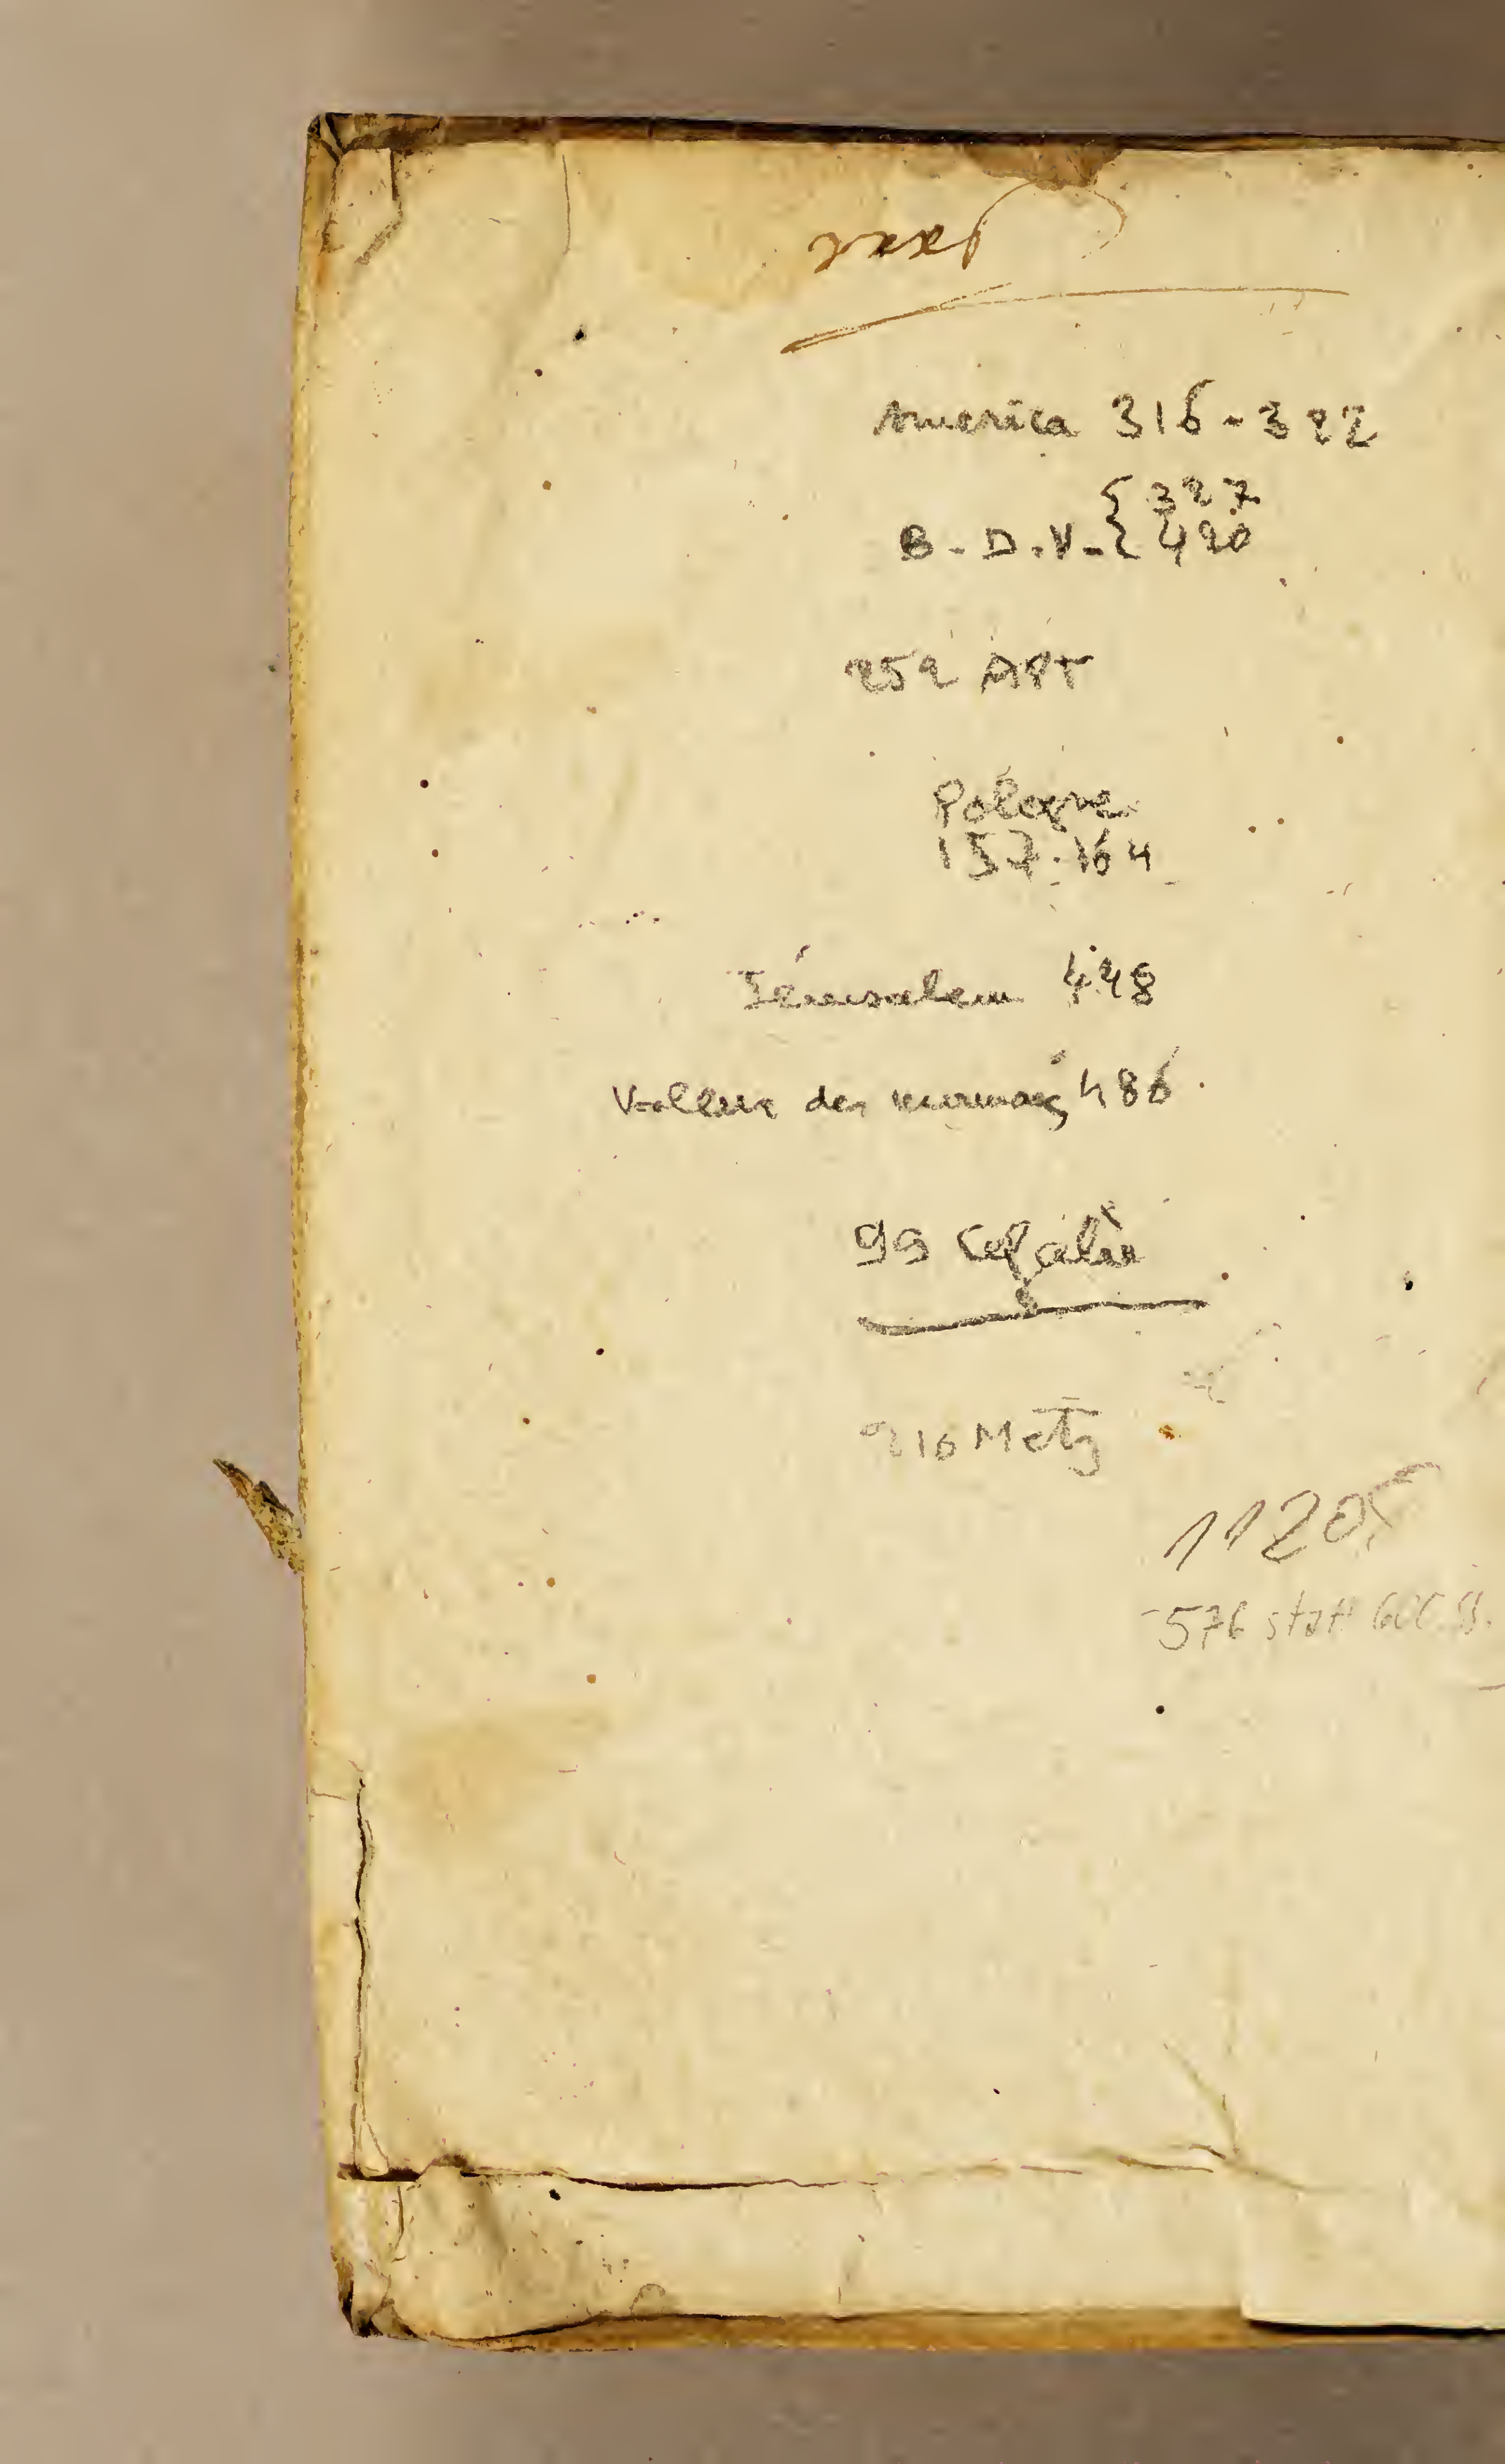 America 316-322
B-D.V-{327
420
252 APT
Pologne
157-164
Jérusalem 448
Valleur des monnoies 486
99 Cefalù
210 Metz
1120,-
576 statt 600 SS.